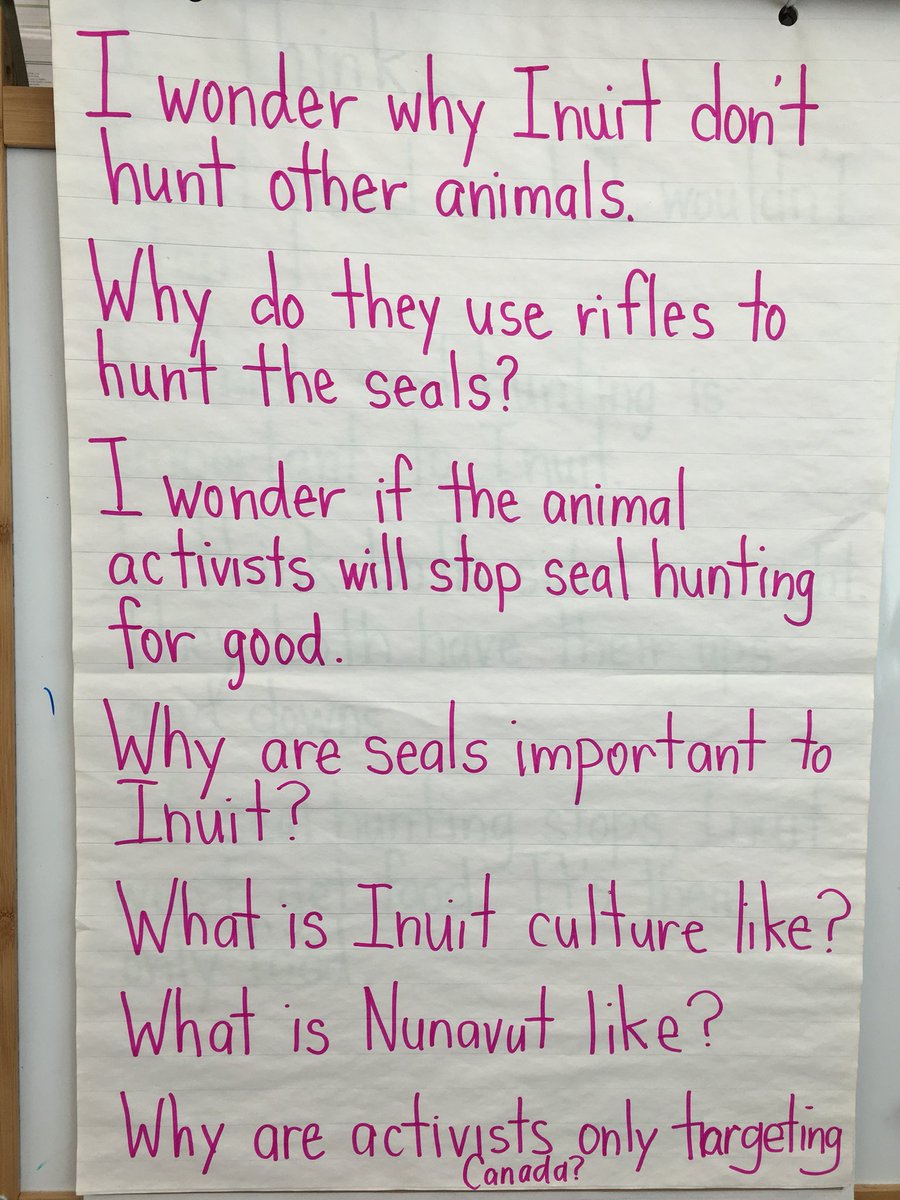 I wonder why Inuit don't
hunt other animals.
Why do they use rifles to
hunt the seals?
I wonder if the animal
activists will stop seal hunting
for good.
Why are seals important to
Inuit?
What is Inuit culture like?
What is Nunavut like?
Why are activists only targeting
Canada?